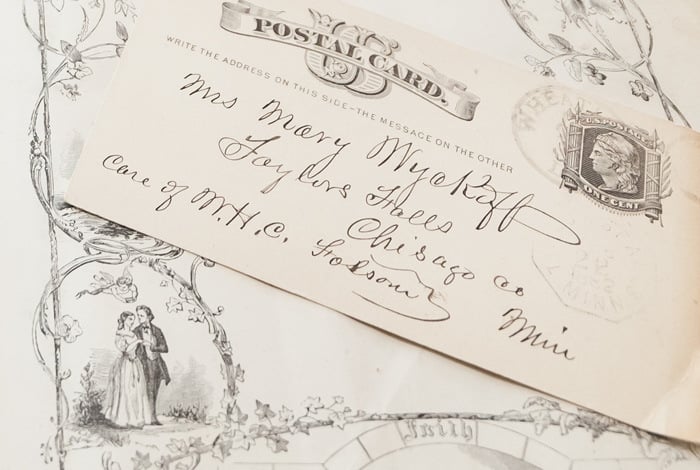 U.S.
POSTAL CARD.
WRITE THE ADDRESS ON THIS SIDE-THE MESSAGE ON THE OTHER
WHEA
U.S. POSTAGE
ONE CENT
Mrs Mary Wyckoff
Taylors Falls
Chisago co
Care of W.H.C. Folsom
Min
MINN
Faith